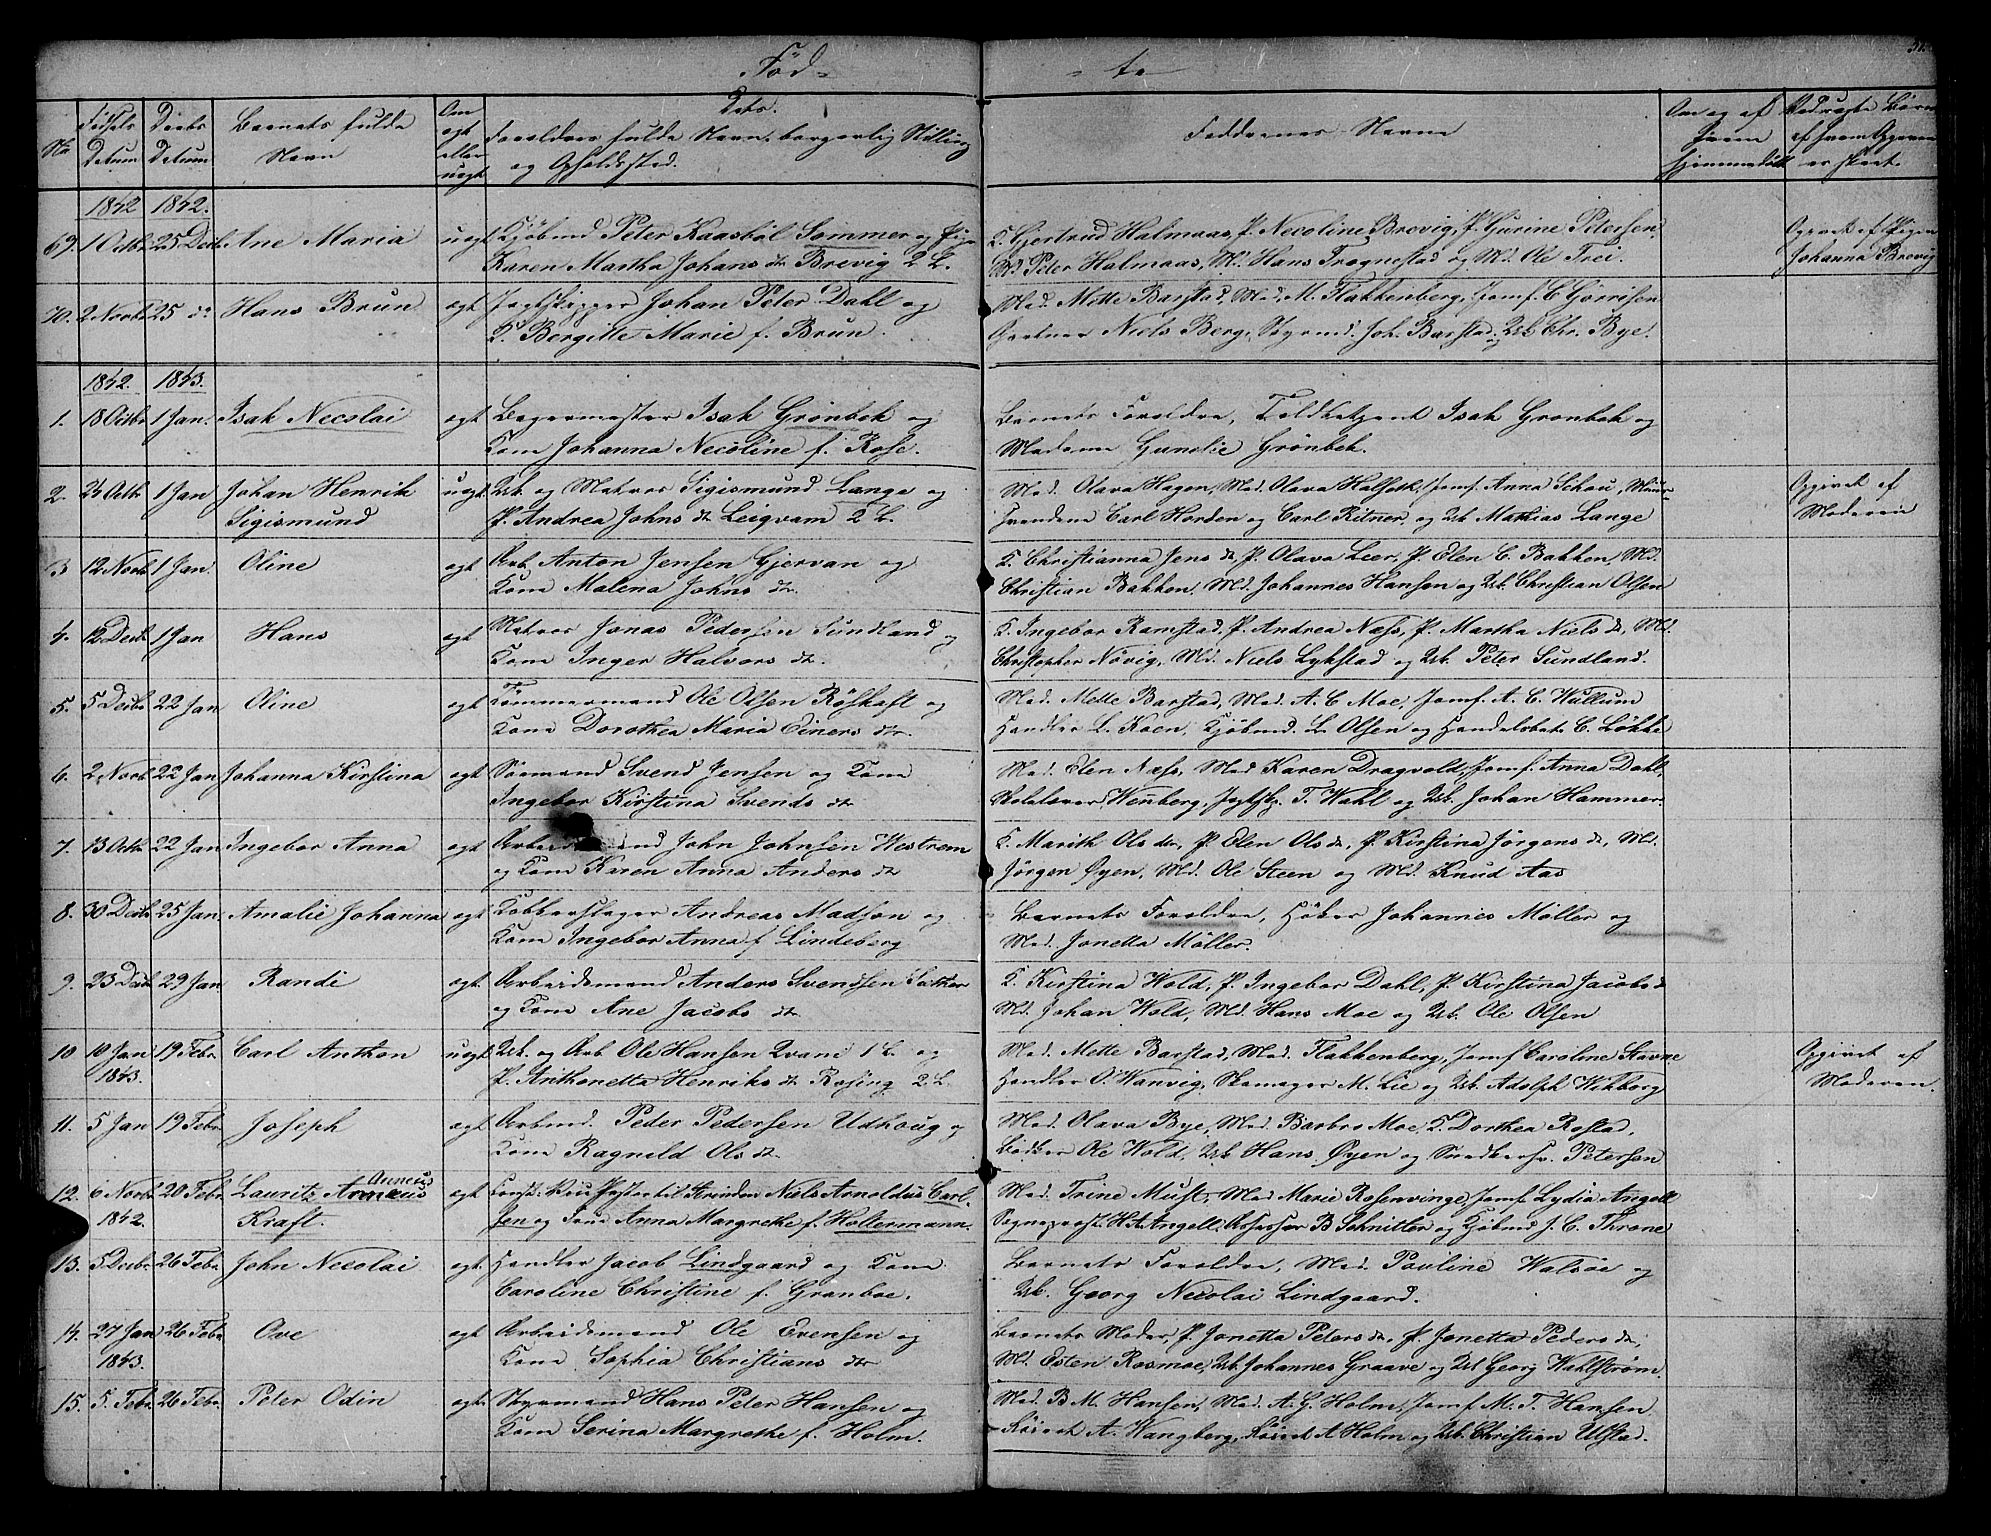 Föd-te
No
Fødsels Datum
Daabs Datum
Barnets fulde Navn
Om ægt eller uægt
Dets Forældres fulde Navn, borgerlig Stilling og Opholdssted.
Faddrenes Navne
Om og af hvem hjemmedøbt
Uægte Børn af hvem Opgaven er skeet.
1842 1842.
69. 1 Octbr 25 Decb Ane Maria uægt Kjöbmd Peter Kaasböl Sommer og Pige
Karen Martha Johans dr Brevig 2 L.
K. Gjertrud Halmaas, P. Necoline Brevig, P. Gurine Petersen,
Md Peter Halmaas, Md. Hans Trognestad og Md. Ole Trei.
Opgivet af Pigen
Johanna Brevig
70. 2 Novbr 25 do Hans Brun ægt Jagtskipper Johan Peter Dahl og
K. Bergitte Marie f. Brun.
Mad. Mette Barstad, Mad. M. Flakkenberg, Jomf. C Gjörrisen
Gartner Niels Berg, Styrmd. Joh. Barstad og Usk. Chr. Bye.
1842. 1843.
1. 18 Octbr 1 Jan. Isak Necolai ægt Bagermester Isak Grönbek og
Kone Johanna Necoline f. Rose.
Barnets Forældre, Toldbetjent Isak Gronbek og
Madame Gunelie Grönbek.
2. 24 Octb 1 Jan Johan Henrik uægt Usk. og Matros Sigismund Lange og
Sigismund P. Andrea Johns dr Leigvam 2 L.
Mad. Olava Hagen, Mad. Olava Halseth, Jomf. Anna Schou, Muur-
svendene Carl Horden og Carl Ritner, og Usk Mathias Lange
Opgivet af
Moderen
3 12 Novb 1 Jan. Oline ægt Arb. Anton Jensen Gjervan og
Kone Malena Johns dr.
K. Christianna Jens dr, P. Olava Leer, P. Elen C. Bakken, Md.
Christian Bakken, Md. Johannes Hansen og Usk. Christian Olsen
4. 12 Decb. 1 Jan Hans ægt Matros Jonas Pedersen Sundland og
Kone Inger Halvors dr.
K. Ingebor Ramstad, P. Andrea Næss, P. Martha Niels dr, Md.
Christopher Növig, Md. Niels Lykstad og Usk. Peter Sundland.
5. 5 Decbr 22 Jan Oline ægt Tømmermand Ole Olsen Röskaft og
Kone Dorothea Maria Einers dtr.
Mad. Mette Barstad, Mad. A. C Moe, Jomf. A. C. Wullum
Handler L. Koen, Kjöbmd. L. Olsen og Handelsbet. C. Lökke
6. 2 Novb 22 Jan Johanna Kirstina ægt Sømand Svend Jensen og Kone
Ingebor Kirstina Svends dr
Mad. Elen Næss, Mad Karen Dragvold, Jomf. Anna Dahl,
Wenberg, Jagtsk. T. Wahl og Usk. Johan Hammer.
7. 13 Octb 22 Jan Ingebor Anna ægt Arbeidsmand John Johnsen Westrem
og Kone Karen Anna Anders dr
K. Marith Ols dr, P. Elen Ols dr, P. Kirstina Jörgens dr, Md.
Jörgen Øyen, Md. Ole Steen og Md. Knud Aas
8. 30 Decb 25 Jan Amalie Johanna ægt Kobberslager Andreas Madsøn og
Kone Ingebor Anna f Lindeberg
Barnets Forældre, Höker Johannes Möller og
Mad. Jonetta Möller.
9. 23 Decb 29 Jan. Randi ægt Arbeidsmand Anders Svendsen Sæther
og Kone Ane Jacobs dr
K. Kirstina Wold, P. Ingebor Dahl, P. Kirstina Jacobs d
Md. Johan Wold, Md. Hans Moe og Usk. Ole Olsen
10 10 Jan 19 Febr Carl Anthon uægt Usk. og Arb Ole Hansen Qvam 1 L. og
1843. P. Anthonetta Henriks dr Rosing 2 L.
Mad. Mette Barstad, Mad. Flakkenberg, Jomf Caroline Stavne
Handler O. Wanvig, Skomager M. Lie og Usk. Adolph Wikborg
Opgivet af
Moderen.
11. 5 Jan 19 Febr Joseph ægt Arbmd. Peder Pedersen Udhoug og
Kone Ragnild Ols dr.
Mad. Olava Bye, Mad. Barbro Moe, K. Dorthea Rostad,
Bödker Ole Wold, Usk Hans Øyen og Snedkersv. Petersen
12. 6 Novbr 20 Febr. Lauritz Annæus Annæus
1842. Kraft. ægt Const: til Strinden Niels Arnoldus Carl-
sen og Frue Anna Margrethe f. Holtermann.
Mad. Trine Must, Mad Marie Rosenvinge, Jomf Lydia Angell
Sognepræst H. A. Angell, Assessor B Schnitler og Kjöbmd J. C. Throne
13. 5 Decbr 26 Febr John Necolai ægt Handler Jacob Lindgaard og Kone
Caroline Christine f. Granboe.
Barnets Forældre, Mad. Pauline Walsöe og
Usk. Georg Necolai Lindgaard.
14. 27 Jan 26 Febr Ove ægt Arbeidsmand Ole Evensen og
1843. Kone Sophia Christians dtr
Barnets Moder, P. Jonetta Peters dr, P. Jonetta Peders dr,
Md. Esten Rosmoe, Usk Johannes Graave og Usk Georg Wahlström.
15. 5. Febr. 26 Febr Peter Odin ægt. Styrmand Hans Peter Hansen og
Kone Serina Margrethe f. Holm.
Mad. B M. Hansen, Mad. A. G. Holm, Jomf M. T. Hansen
A. Wangberg, A Holm og Usk. Christian Ulstad.